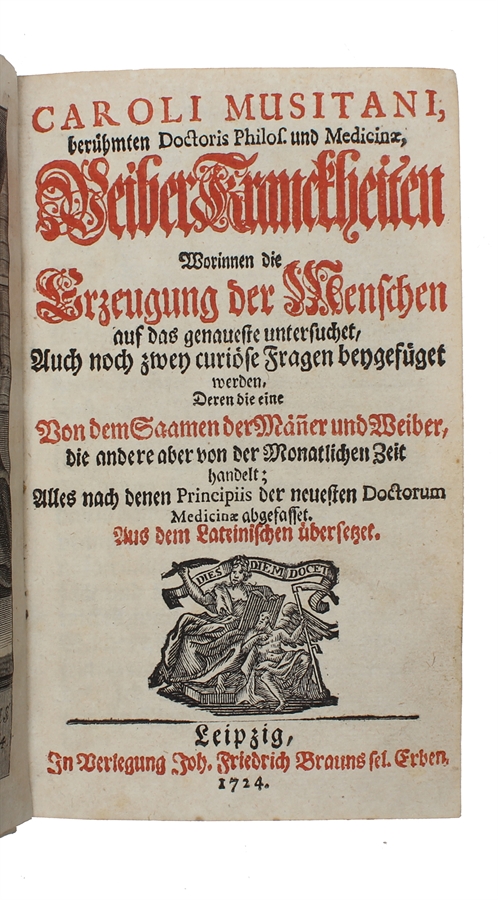 CAROLI MUSITANI,
berühmten Doctoris Philoſ. und Medicinæ,
Weiber Kranckheiten
Worinnen die
Erzeugung der Menſchen
auf das genaueſte unterſuchet,
Auch noch zwey curiöſe Fragen beygefüget
werden,
Deren die eine
Von dem Saamen der Mäñer und Weiber,
die andere aber von der Monatlichen Zeit
handelt;
Alles nach denen Principiis der neueſten Doctorum
Medicinæ abgefaſſet.
Aus dem Lateiniſchen überſetzet.
DIES DIEM DOCET
Leipzig,
In Verlegung Joh. Friedrich Brauns ſel. Erben.
1724.